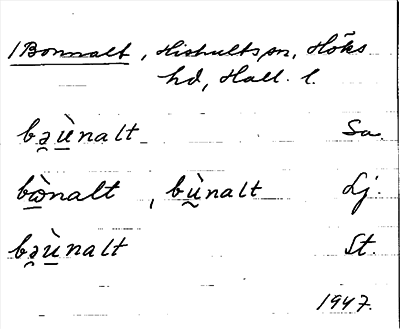 /Bonnalt, Hishults sn, Höks
hd, Hall. l.
bə̯ù̱nalt Sa.
bὼ̱nalt, bù̯nalt Lj.
bə̯ù̱nalt St.
1947.